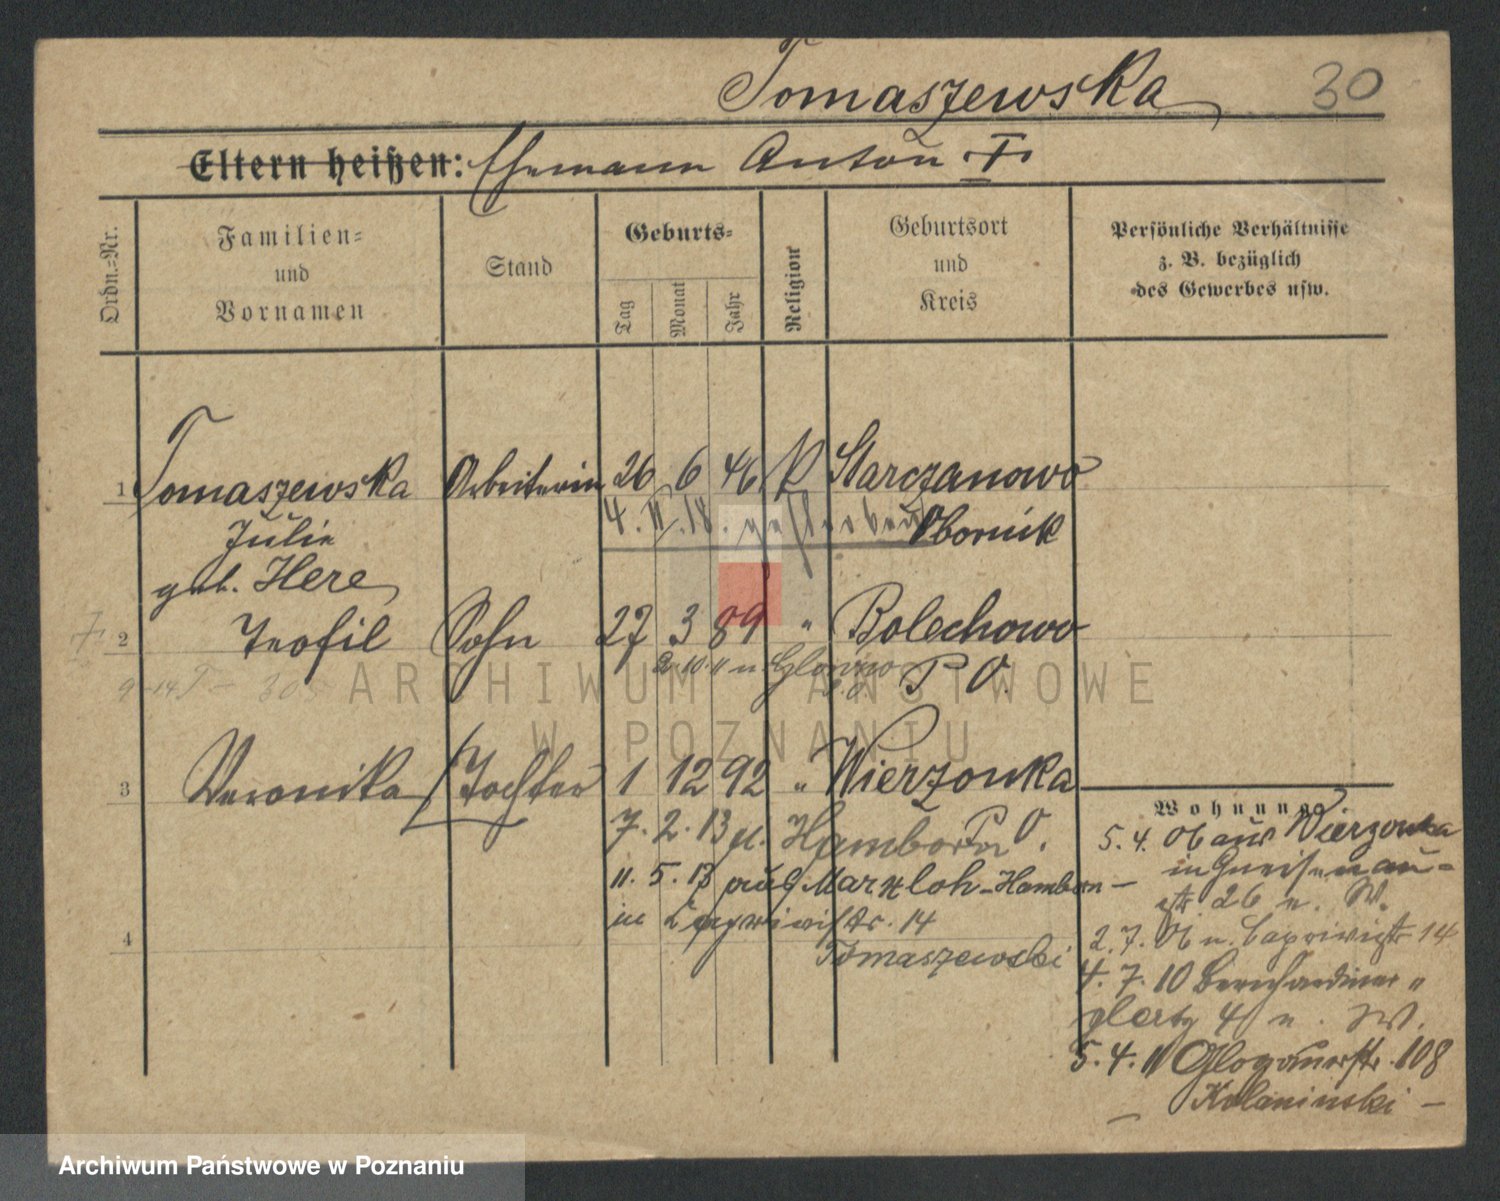 Tomaszewska 30
Eltern heißen: Ehemann Anton T
Ordn.=Nr.
Familien= und Vornamen
Stand
Geburts=
Tag Monat Jahr
Religion
Geburtsort und Kreis
Persönliche Verhältnisse
z. B. bezüglich
des Gewerbes usw.
1 Tomaszewska Arbeiterin 26 6 46 k Starczanowo
4. II. 18. gestorben Obornik
Julie
geb. Here
2 Teofil Sohn 27 3 89 " Bolechowo
2. 10. 11 n. Glowno P. O.
9-14 T - 30
3 Veronika Tochter 1 12 92 " Wierzonka
P. O.
7. 2. 13 n. Hamborn
11. 5. 13 aus Marxloh-Hamborn -
in Caprivistr. 14
4 Tomaszewski
Wohnung.
5. 4. 06 aus Wierzonka
in Gneisenau=
str. 26 n. W.
2. 7. 06 n. Caprivistr 14
4. 7. 10 Bernhardiner "
platz 4 n. W.
5. 4. 11 Glogauerstr. 108
- Kolaninski -
ARCHIWUM PAŃSTWOWE
W POZNANIU
Archiwum Państwowe w Poznaniu